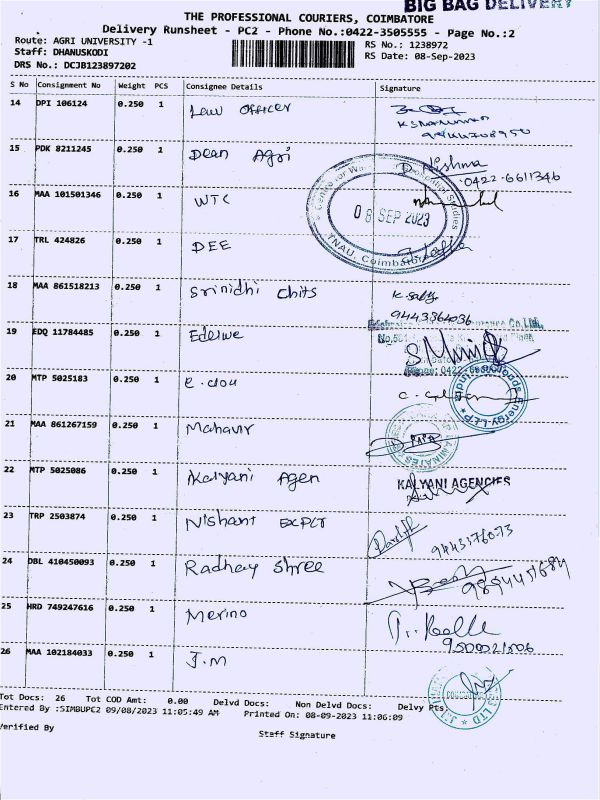 BIG BAG DELIVERY
THE PROFESSIONAL COURIERS, COIMBATORE
Delivery Runsheet - PC2 - Phone No.:0422-3505555 - Page No.:2
Route: AGRI UNIVERSITY -1
RS No.: 1238972
Staff: DHANUSKODI
RS Date: 08-Sep-2023
DRS No.: DCJB123897202
S No Consignment No Weight PCS Consignee Details Signature
14 DPI 106124 0.250 1 Law Officer
15 PDK 8211245 0.250 1 Dean Agri
0422-6611346
16 MAA 101501346 0.250 1 WTC
08 SEP 2023
TNAU, Coimbatore
17 TRL 424826 0.250 1 DEE
18 MAA 861518213 0.250 1 Srinidhi Chits
9443364036
19 EDQ 11784485 0.250 1 Edelwe
20 MTP 5025183 0.250 1
21 MAA 861267159 0.250 1 Mahavir
22 MTP 5025086 0.250 1 Kalyani Agen KALYANI AGENCIES
23 TRP 2503874 0.250 1 Nishant
24 DBL 410450093 0.250 1 Radhay Shree
25 HRD 749247616 0.250 1 Merino
26 MAA 102184033 0.250 1 J.M
Tot Docs: 26 Tot COD Amt: 0.00 Delvd Docs: Non Delvd Docs: Delvy Pts:
Entered By :SIMBUPC2 09/08/2023 11:05:49 AM Printed On: 08-09-2023 11:06:09
Verified By
Staff Signature